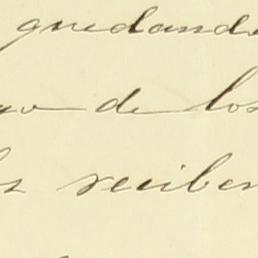 quedando
de los
reciben